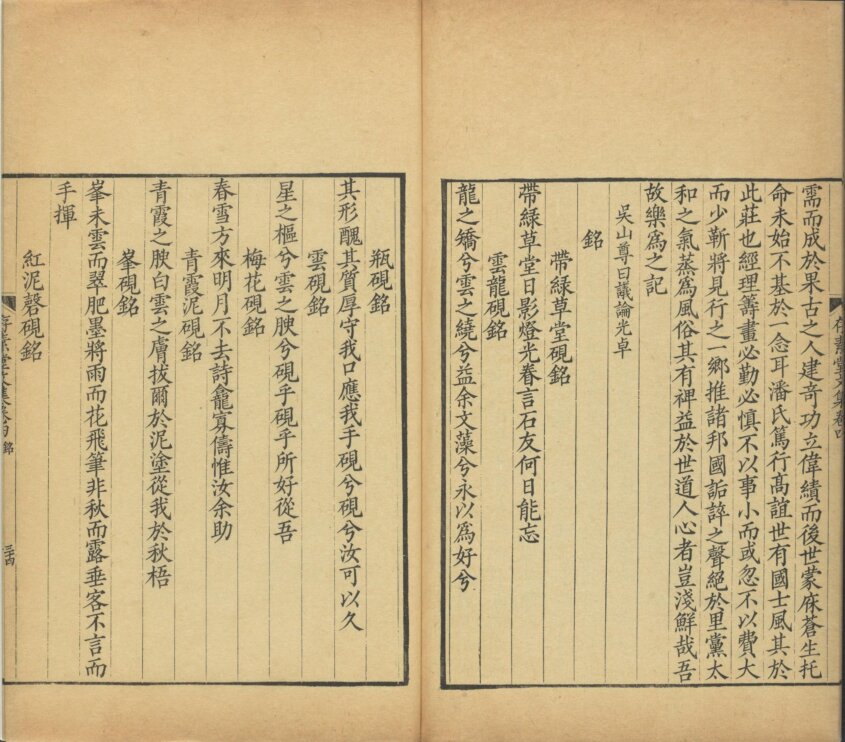 需而成於果古之人建奇功立偉績而後世蒙庥蒼生托
命未始不基於一念耳潘氏篤行高誼世有國士風其於
此莊也經理籌畫必勤必慎不以事小而或忽不以費大
而少靳將見行之一鄉推諸邦國詬誶之聲絕於里黨太
和之氣蒸為風俗其有裨益於世道人心者豈淺鮮哉吾
故樂為之記
吳山尊曰議論光卓
銘
帶綠草堂硯銘
帶綠草堂日影燈光眷言石友何日能忘
雲龍硯銘
龍之矯兮雲之繞兮益余文藻兮永以為好兮
瓶硯銘
其形醜其質厚守我口應我手硯兮硯兮汝可以久
雲硯銘
星之樞兮雲之腴兮硯乎硯乎所好從吾
梅花硯銘
春雪方來明月不去詩龕寡儔惟汝余助
青霞泥硯銘
青霞之腴白雲之膚拔爾於泥塗從我於秋梧
峯硯銘
峯未雲而翠肥墨將雨而花飛筆非秋而露垂客不言而
手揮
紅泥磬硯銘
存素堂文集卷四 銘
三十四